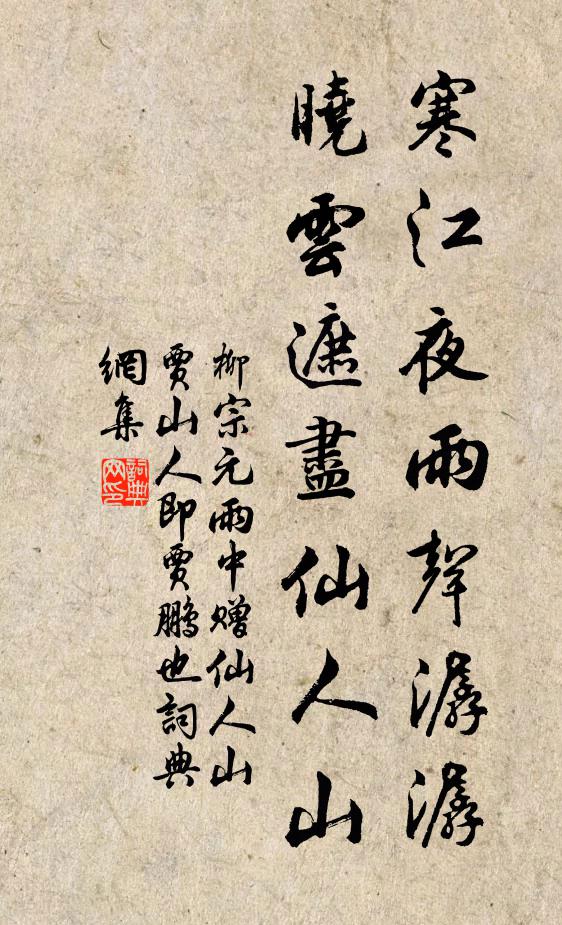 寒江夜雨聲潺潺
曉雲遮盡仙人山
柳宗元雨中贈仙人山
賈山人即賈鵬也詞典
網集
詞典
网印